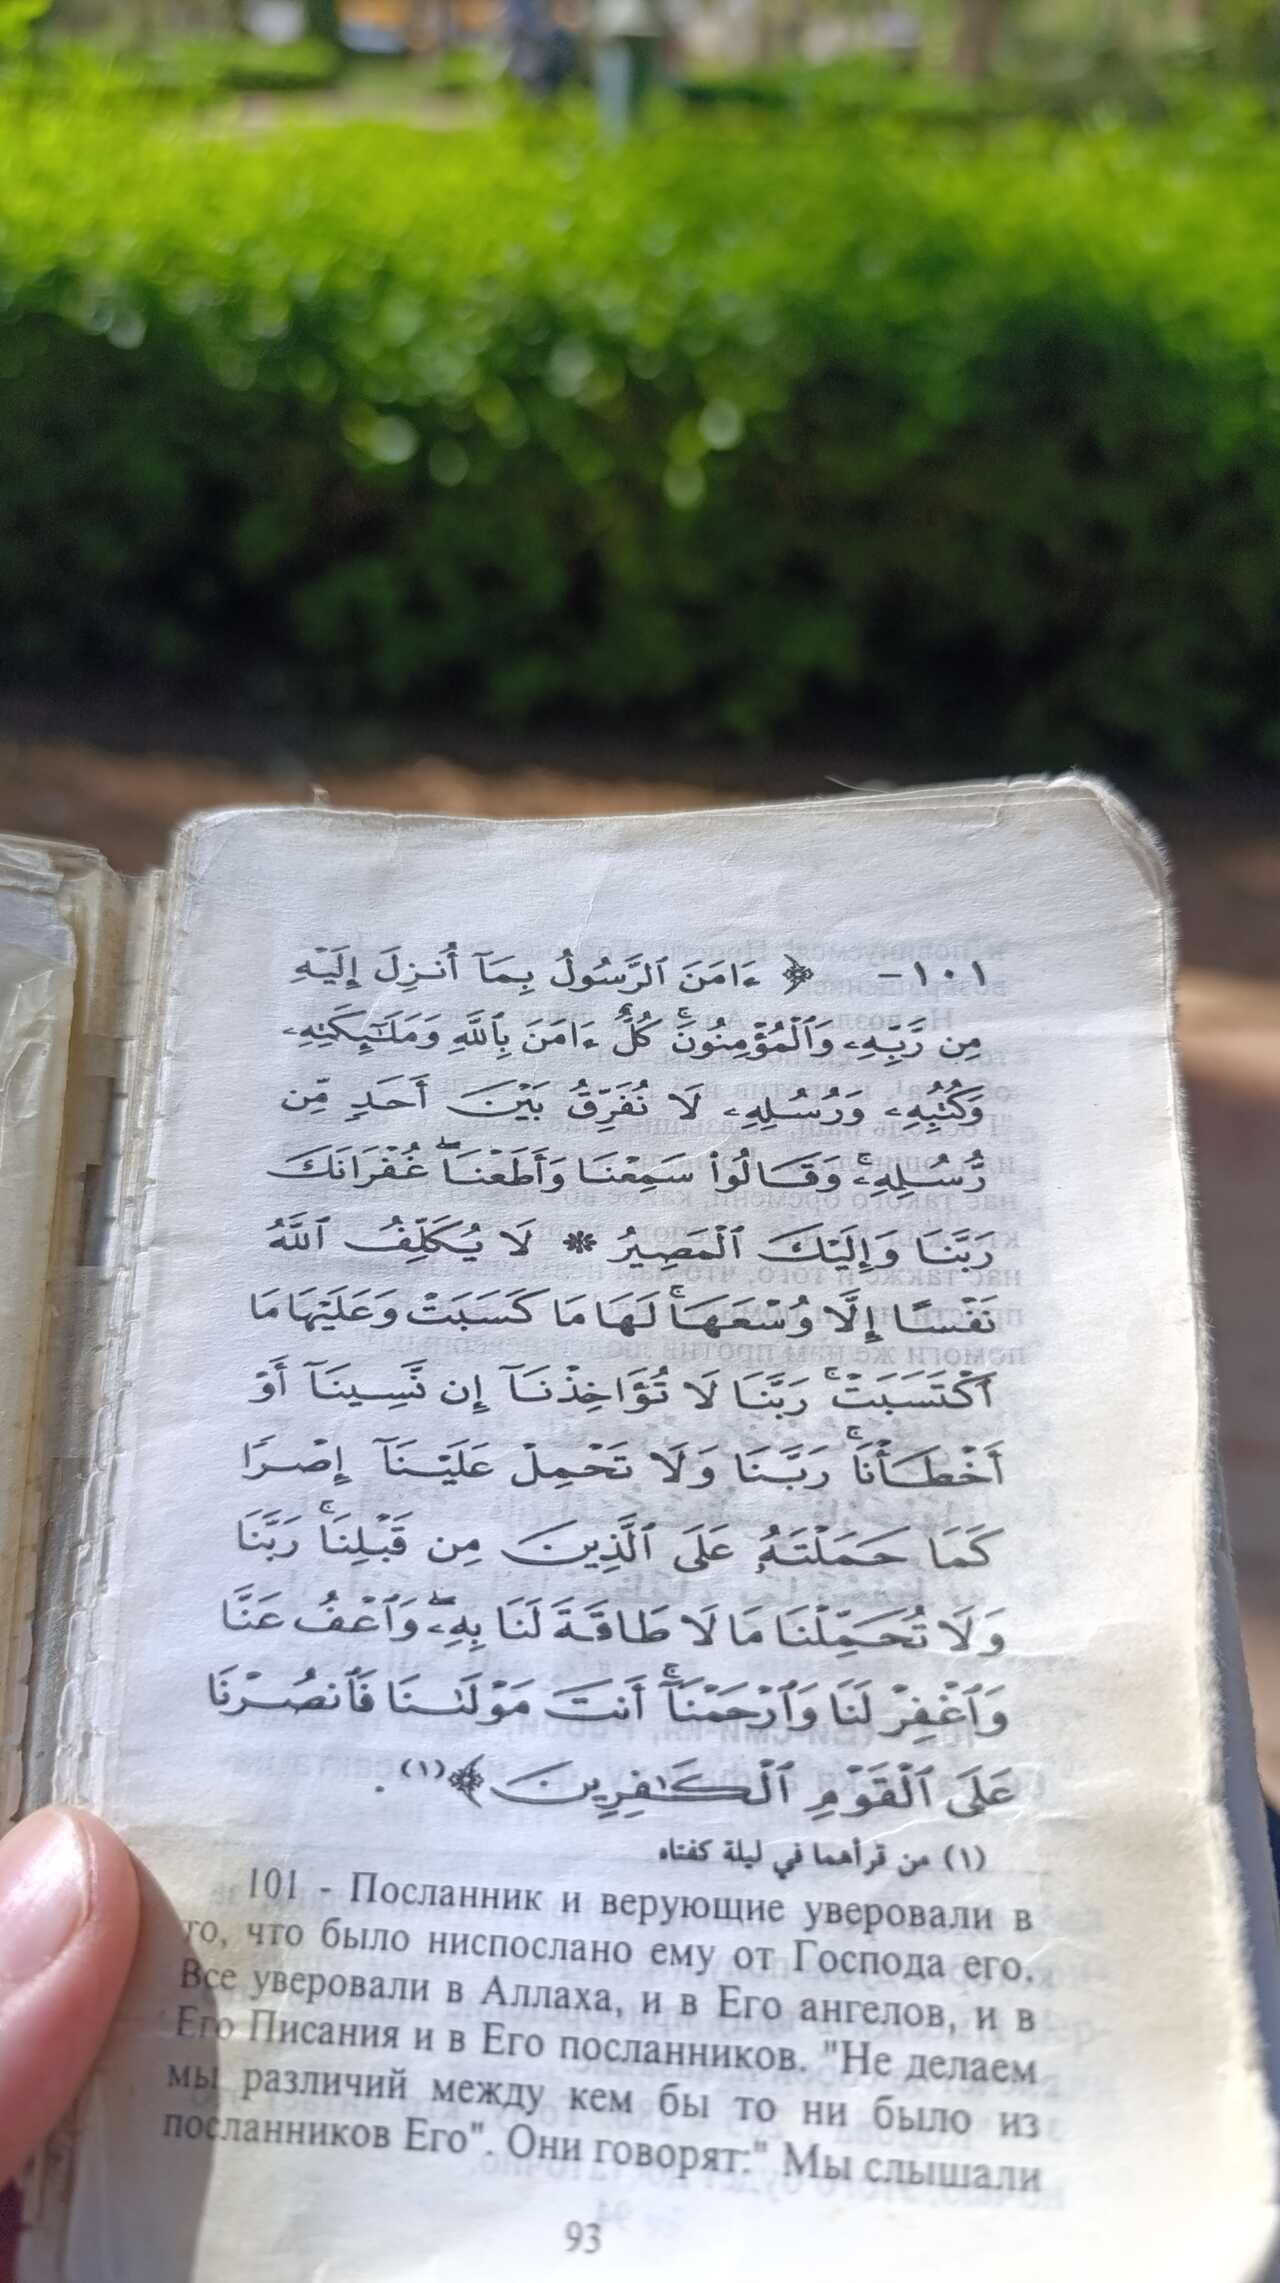 ١٠١- ﴿ ءَامَنَ ٱلرَّسُولُ بِمَآ أُنزِلَ إِلَيْهِ
مِن رَّبِّهِۦ وَٱلْمُؤْمِنُونَۚ كُلٌّ ءَامَنَ بِٱللَّهِ وَمَلَٰٓئِكَتِهِۦ
وَكُتُبِهِۦ وَرُسُلِهِۦ لَا نُفَرِّقُ بَيْنَ أَحَدٍ مِّن
رُّسُلِهِۦۚ وَقَالُوا۟ سَمِعْنَا وَأَطَعْنَاۖ غُفْرَانَكَ
رَبَّنَا وَإِلَيْكَ ٱلْمَصِيرُ * لَا يُكَلِّفُ ٱللَّهُ
نَفْسًا إِلَّا وُسْعَهَاۚ لَهَا مَا كَسَبَتْ وَعَلَيْهَا مَا
ٱكْتَسَبَتْۗ رَبَّنَا لَا تُؤَاخِذْنَآ إِن نَّسِينَآ أَوْ
أَخْطَأْنَاۚ رَبَّنَا وَلَا تَحْمِلْ عَلَيْنَآ إِصْرًا
كَمَا حَمَلْتَهُۥ عَلَى ٱلَّذِينَ مِن قَبْلِنَاۚ رَبَّنَا
وَلَا تُحَمِّلْنَا مَا لَا طَاقَةَ لَنَا بِهِۦۖ وَٱعْفُ عَنَّا
وَٱغْفِرْ لَنَا وَٱرْحَمْنَآۚ أَنتَ مَوْلَىٰنَا فَٱنصُرْنَا
عَلَى ٱلْقَوْمِ ٱلْكَٰفِرِينَ ﴾(١).
(١) من قرأهما في ليلة كفتاه
101 - Посланник и верующие уверовали в
то, что было ниспослано ему от Господа его.
Все уверовали в Аллаха, и в Его ангелов, и в
Его Писания и в Его посланников. "Не делаем
мы различий между кем бы то ни было из
посланников Его". Они говорят:" Мы слышали
93